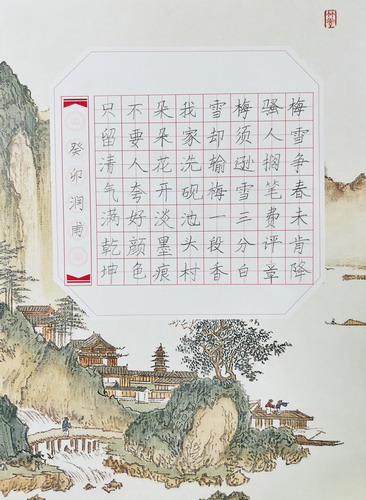 梅雪争春未肯降
骚人搁笔费评章
梅须逊雪三分白
雪却输梅一段香
我家洗砚池头村
朵朵花开淡墨痕
不要人夸好颜色
只留清气满乾坤
癸卯润甫